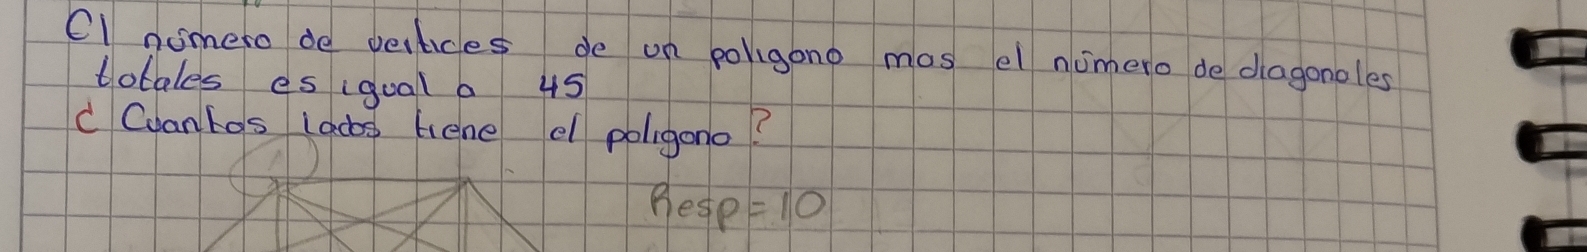 El número de vertices de un poligono mas el número de diagonales
totales es igual a 45
¿ Cuantos lados tiene el poligono?
Resp=10